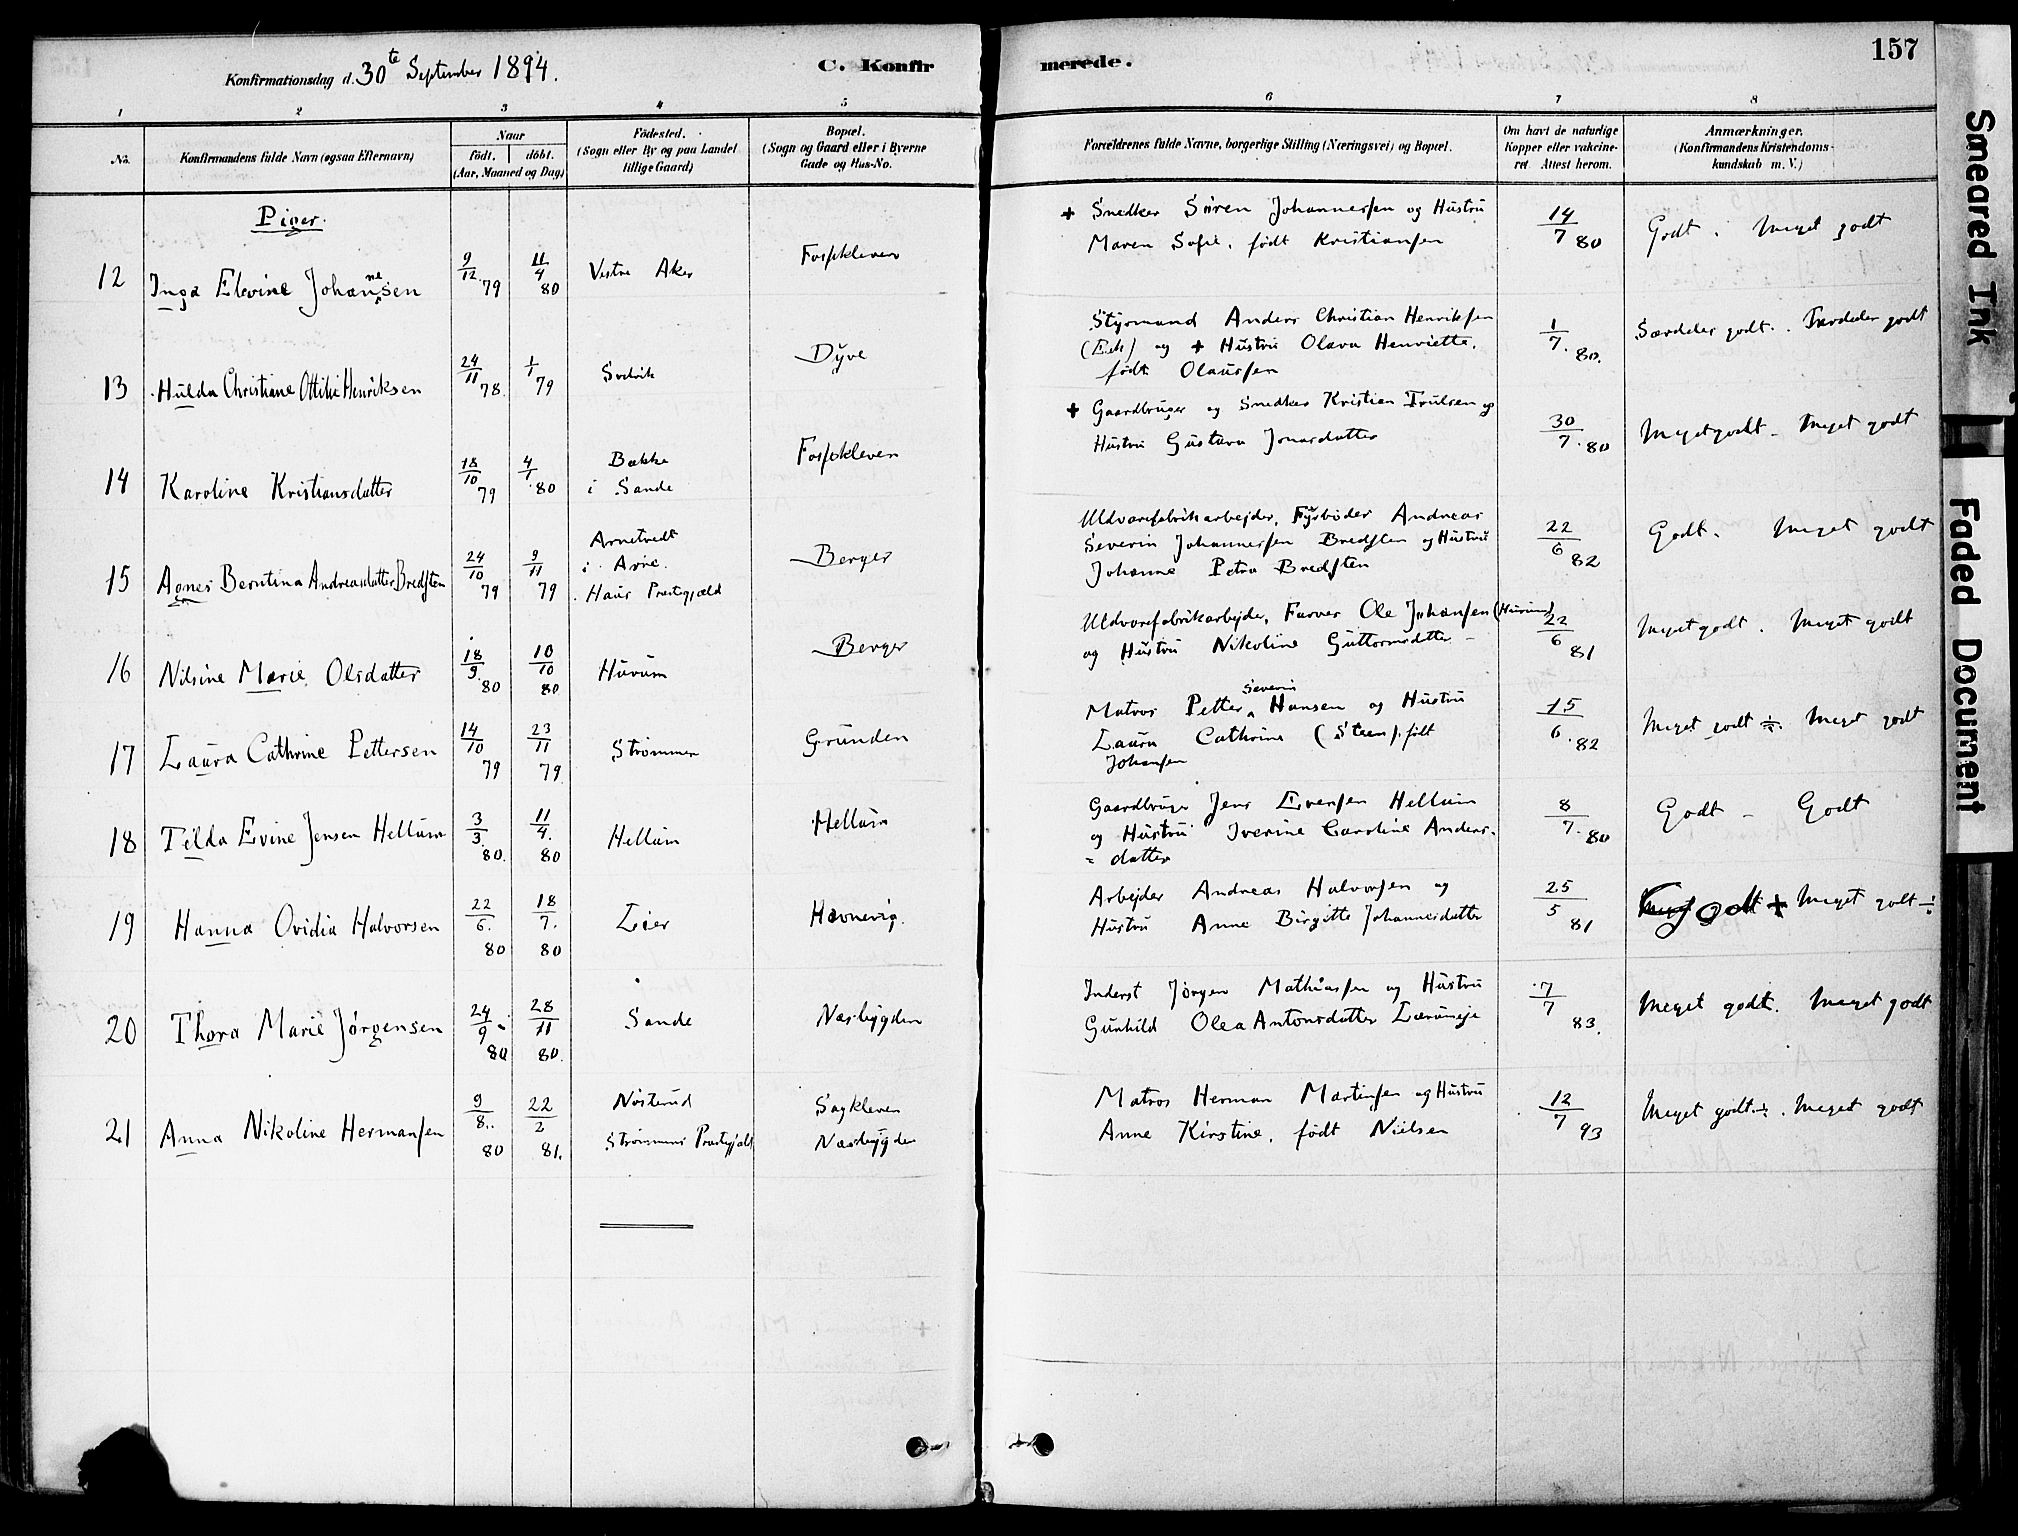 157
Konfirmationsdag d. 30te September 1894.
C. Konfirmerede.
1 2 3 4 5 6 7 8
No.
Konfirmandens fulde Navn (ogsaa Efternavn)
Naar
født. døbt.
(Aar, Maaned og Dag)
Fødested.
(Sogn eller By og paa Landet
tillige Gaard)
Bopæl.
(Sogn og Gaard eller i Byerne
Gade og Hus-No.
Forældrenes fulde Navne, borgerlige Stilling (Næringsvei) og Bopæl.
Om havt de naturlige
Kopper eller vakcine-
ret Attest herom.
Anmærkninger.
(Konfirmandens Kristendoms-
kundskab m. V.)
Piger.
12 Inga Elevine Johannesen
9/12 79
11/4 80
Vestre Aker
Fosskleven
+ Snedker Sören Johannesſen og Hustru
Maren Sofie, født Kristianſen
14/7 80
Godt. Meget godt
13 Hulda Christiane Ottilie Henriksen
24/11 78.
1/1 79
Svelvik
Dyve
Styrmand Anders Christian Henrikſen
(Eek) og + Hustru Olava Henriette,
født Olausſen
1/7. 80.
Særdeles godt. Særdeles godt
14 Karoline Kristiansdatter
18/10 79
4/1 80
Bække
i Sande
Fosskleven
+ Gaardbruger og Snedker Kristian Trulsen og
Hustru Gustava Jonasdatter
30/7. 80
Meget godt – Meget godt
15 Agnes Berntina Andreasdatter Bredſten
24/10 79
9/11 79
Arnetvedt
i Arne.
Haus Prestegjæld
Berger
Uldvarefabrikarbejder, Fyrbøder Andreas
Severin Johannesſen Bredſten og Hustru
Johanne Petra Bredſten
22/6 82
Godt. Meget godt
16 Nilsine Marie Olsdatter
18/9. 80
10/10 80
Hurum
Berger
Uldvarefabrikarbejder, Farver Ole Johanſen (Hurum)
og Hustru Nikoline Guttormsdatter –
22/6 81
Meget godt. Meget godt
17 Laura Cathrine Pettersen
14/10 79
23/11 79
Strømmen
Grunden
Matros Petter Severin Hansen og Hustru
Laura Cathrine (Steen), født
Johanſen
15/6. 82
Meget godt ÷. Meget godt
18 Tilda Evine Jensen Hellum
3/3. 80.
11/4. 80
Hellum
Hellum
Gaardbruger Jens Evenſen Hellum
og Hustru Iverine Caroline Anders-
= datter
8/7. 80
Godt – Godt
19 Hanna Ovidia Halvorsen
22/6. 80
18/7. 80
Lier
Havnevig.
Arbejder Andreas Halvorſen og
Hustru Anne Birgitte Johannesdatter
25/5 81
godt + Meget godt ÷
20 Thora Marie Jörgensen
24/9 80
28/11 80.
Sande
Næsbygden
Inderst Jörgen Mathiasſen og Hustru
Gunhild Olea Antonsdatter
7/7 83.
Meget godt. Meget godt
21 Anna Nikoline Hermanſen
9/8.. 80
22/2 81.
Nøsterud
Strømmens Prestegjæld
Sagkleven
Næsbygden
Matros Herman Martinſen og Hustru
Anne Kirstine, født Nielsen
12/7 93
Meget godt. ÷. Meget godt
Smeared Ink
Faded Document